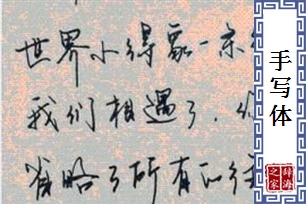 世界小得象一条
我们相遇了，你
省略了所有的往
手写体
辞海之家